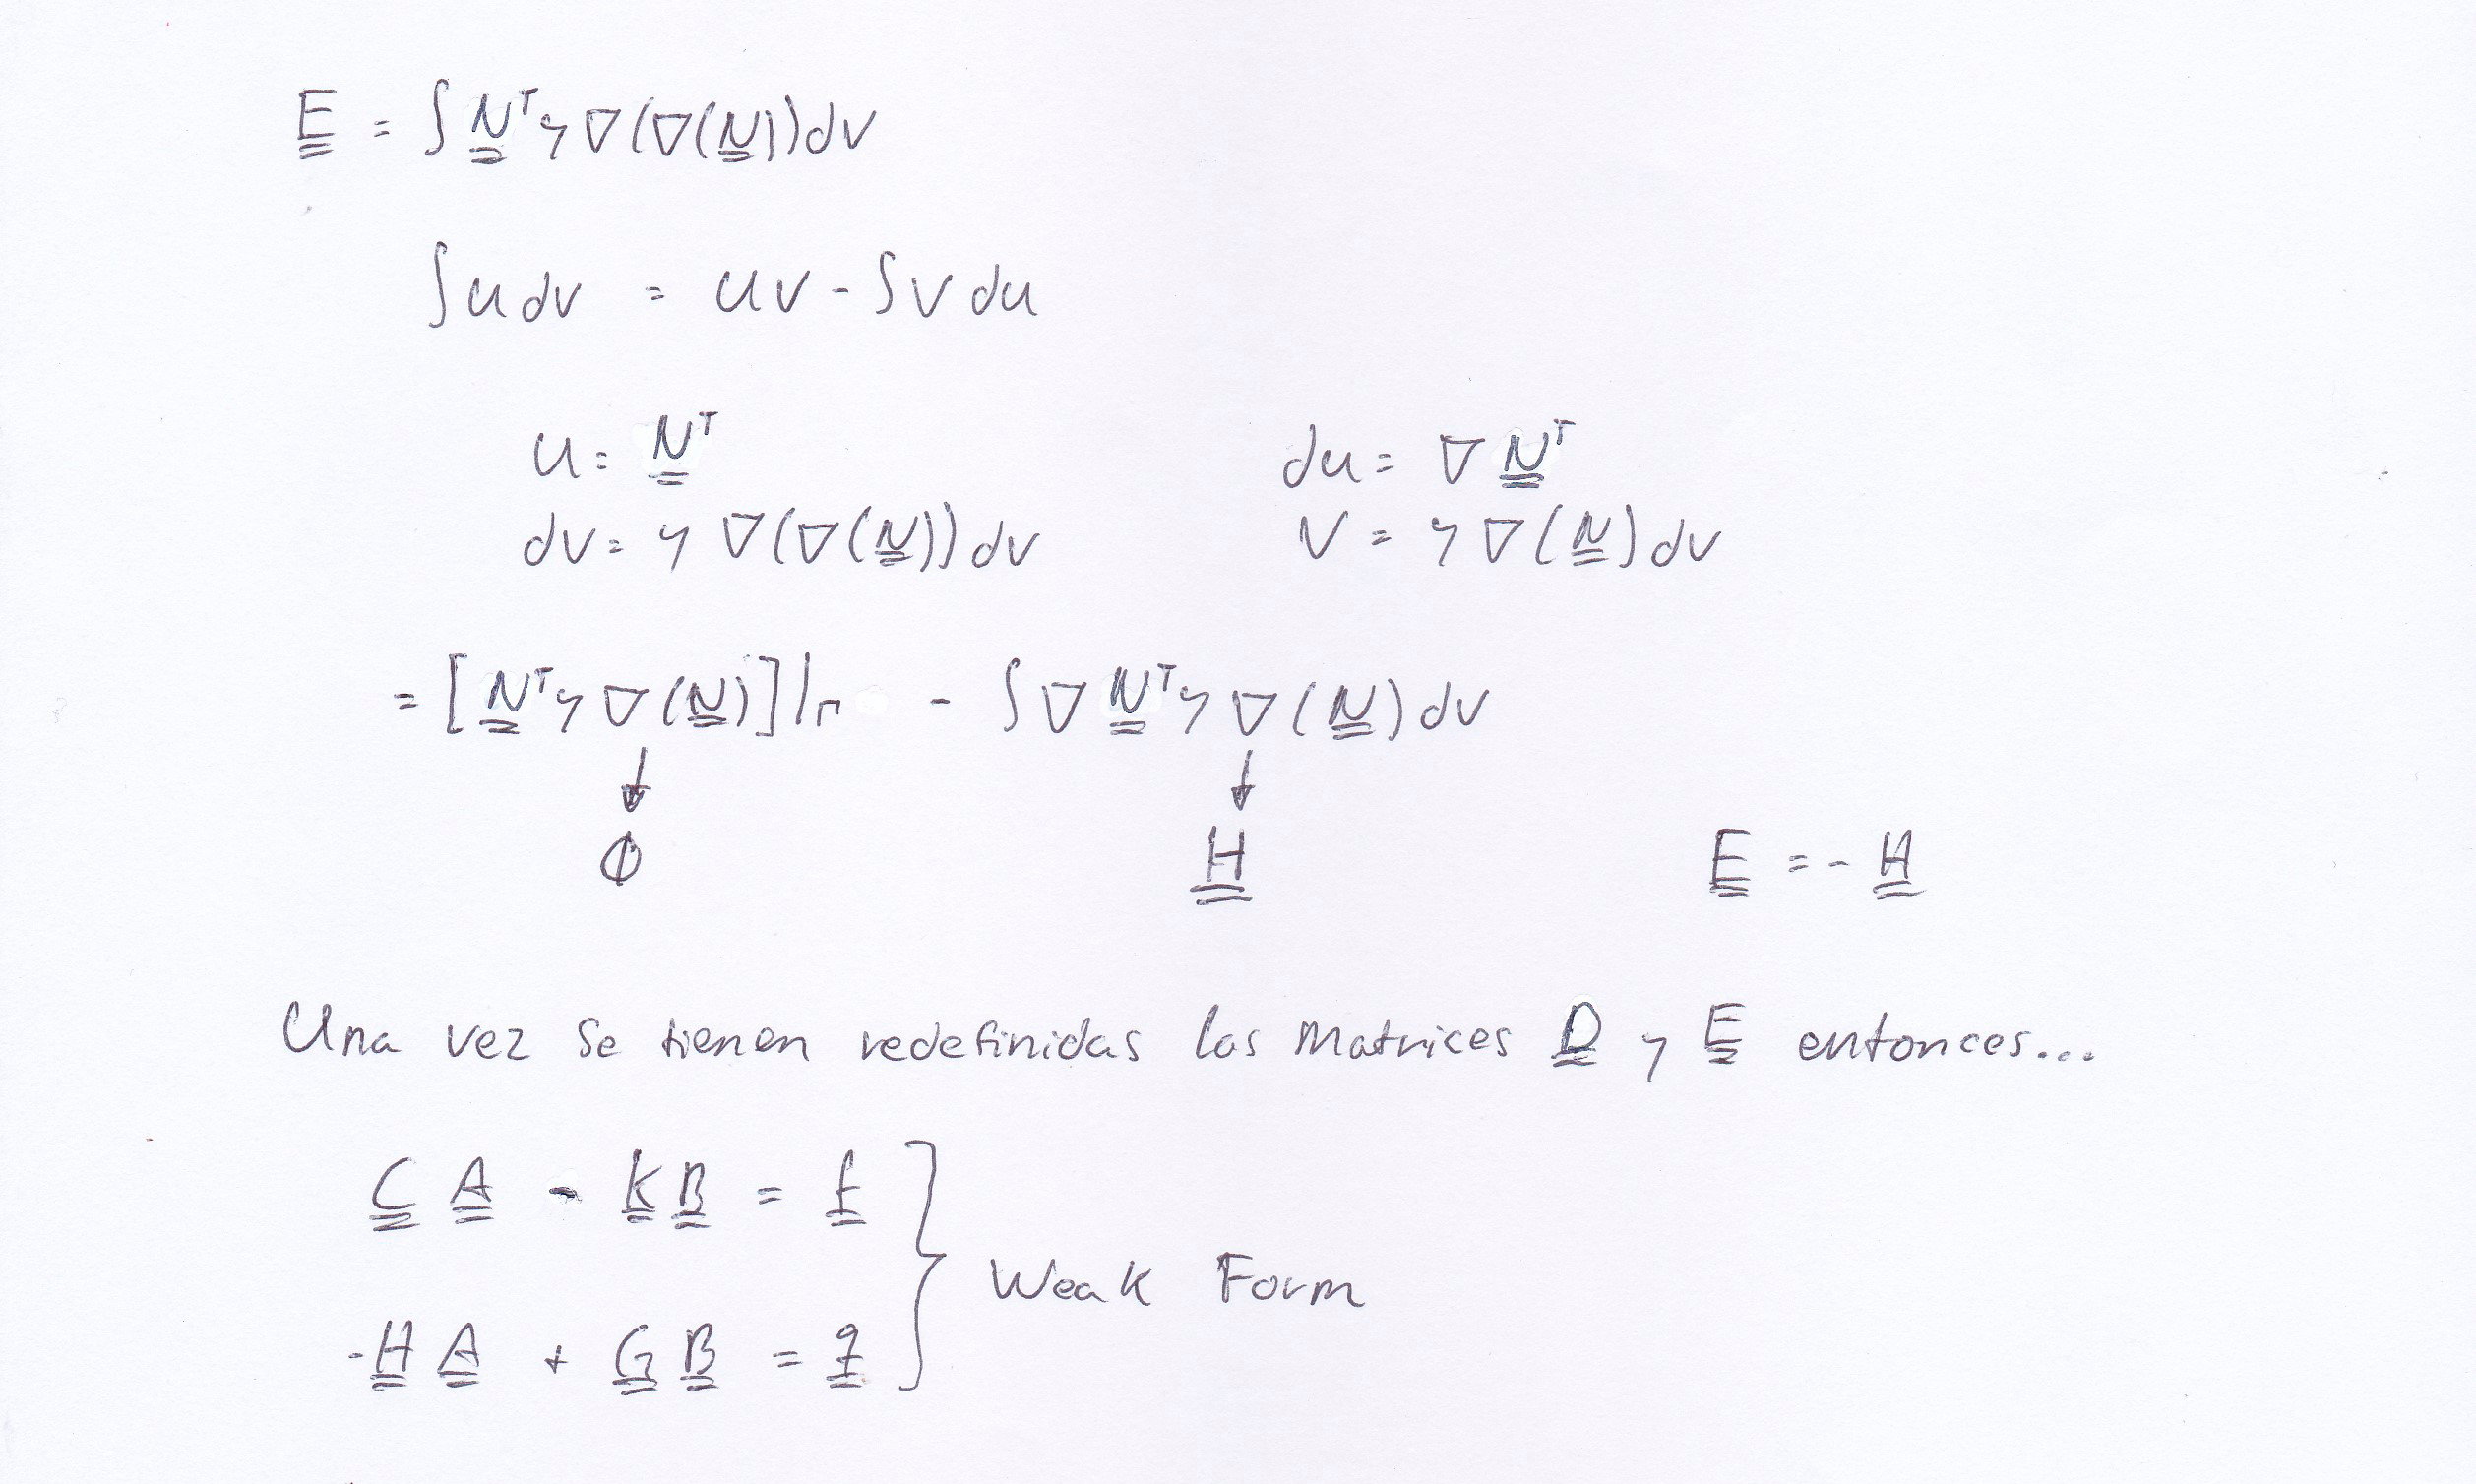 E = ∫ N^T y ∇(∇(N))dv
∫u dv = uv - ∫v du
u = N^T du = ∇ N^T
dv = y ∇(∇(N)) dv v = y ∇(N) dv
= [N^T y ∇(N)]|Γ - ∫∇ N^T y ∇(N) dv
↓ ↓
Φ H E = - H
Una vez se tienen redefinidas las matrices D y E entonces...
C A - K B = f
Weak Form
- H A + G B = g